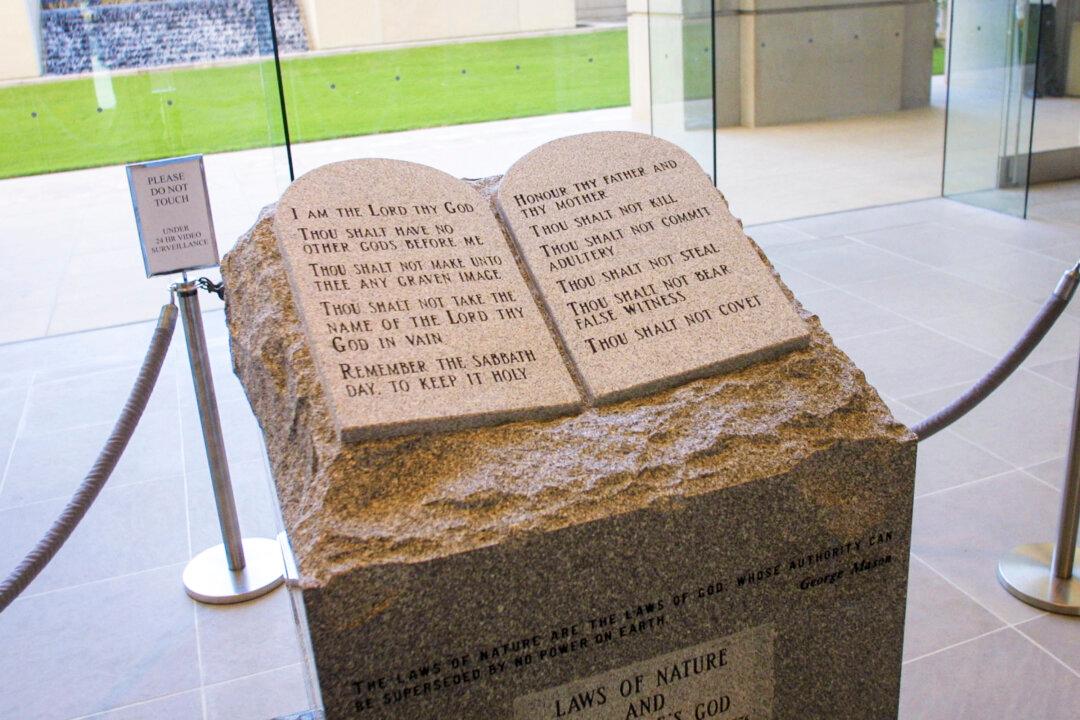 PLEASE
DO NOT
TOUCH
UNDER
24 HR VIDEO
SURVEILLANCE
I AM THE LORD THY GOD
THOU SHALT HAVE NO
OTHER GODS BEFORE ME
THOU SHALT NOT MAKE UNTO
THEE ANY GRAVEN IMAGE
THOU SHALT NOT TAKE THE
NAME OF THE LORD THY
GOD IN VAIN
REMEMBER THE SABBATH
DAY, TO KEEP IT HOLY
HONOUR THY FATHER AND
THY MOTHER
THOU SHALT NOT KILL
THOU SHALT NOT COMMIT
ADULTERY
THOU SHALT NOT STEAL
THOU SHALT NOT BEAR
FALSE WITNESS
THOU SHALT NOT COVET
THE LAWS OF NATURE ARE THE LAWS OF GOD, WHOSE AUTHORITY CAN
BE SUPERSEDED BY NO POWER ON EARTH.
George Mason
LAWS OF NATURE
AND
GOD